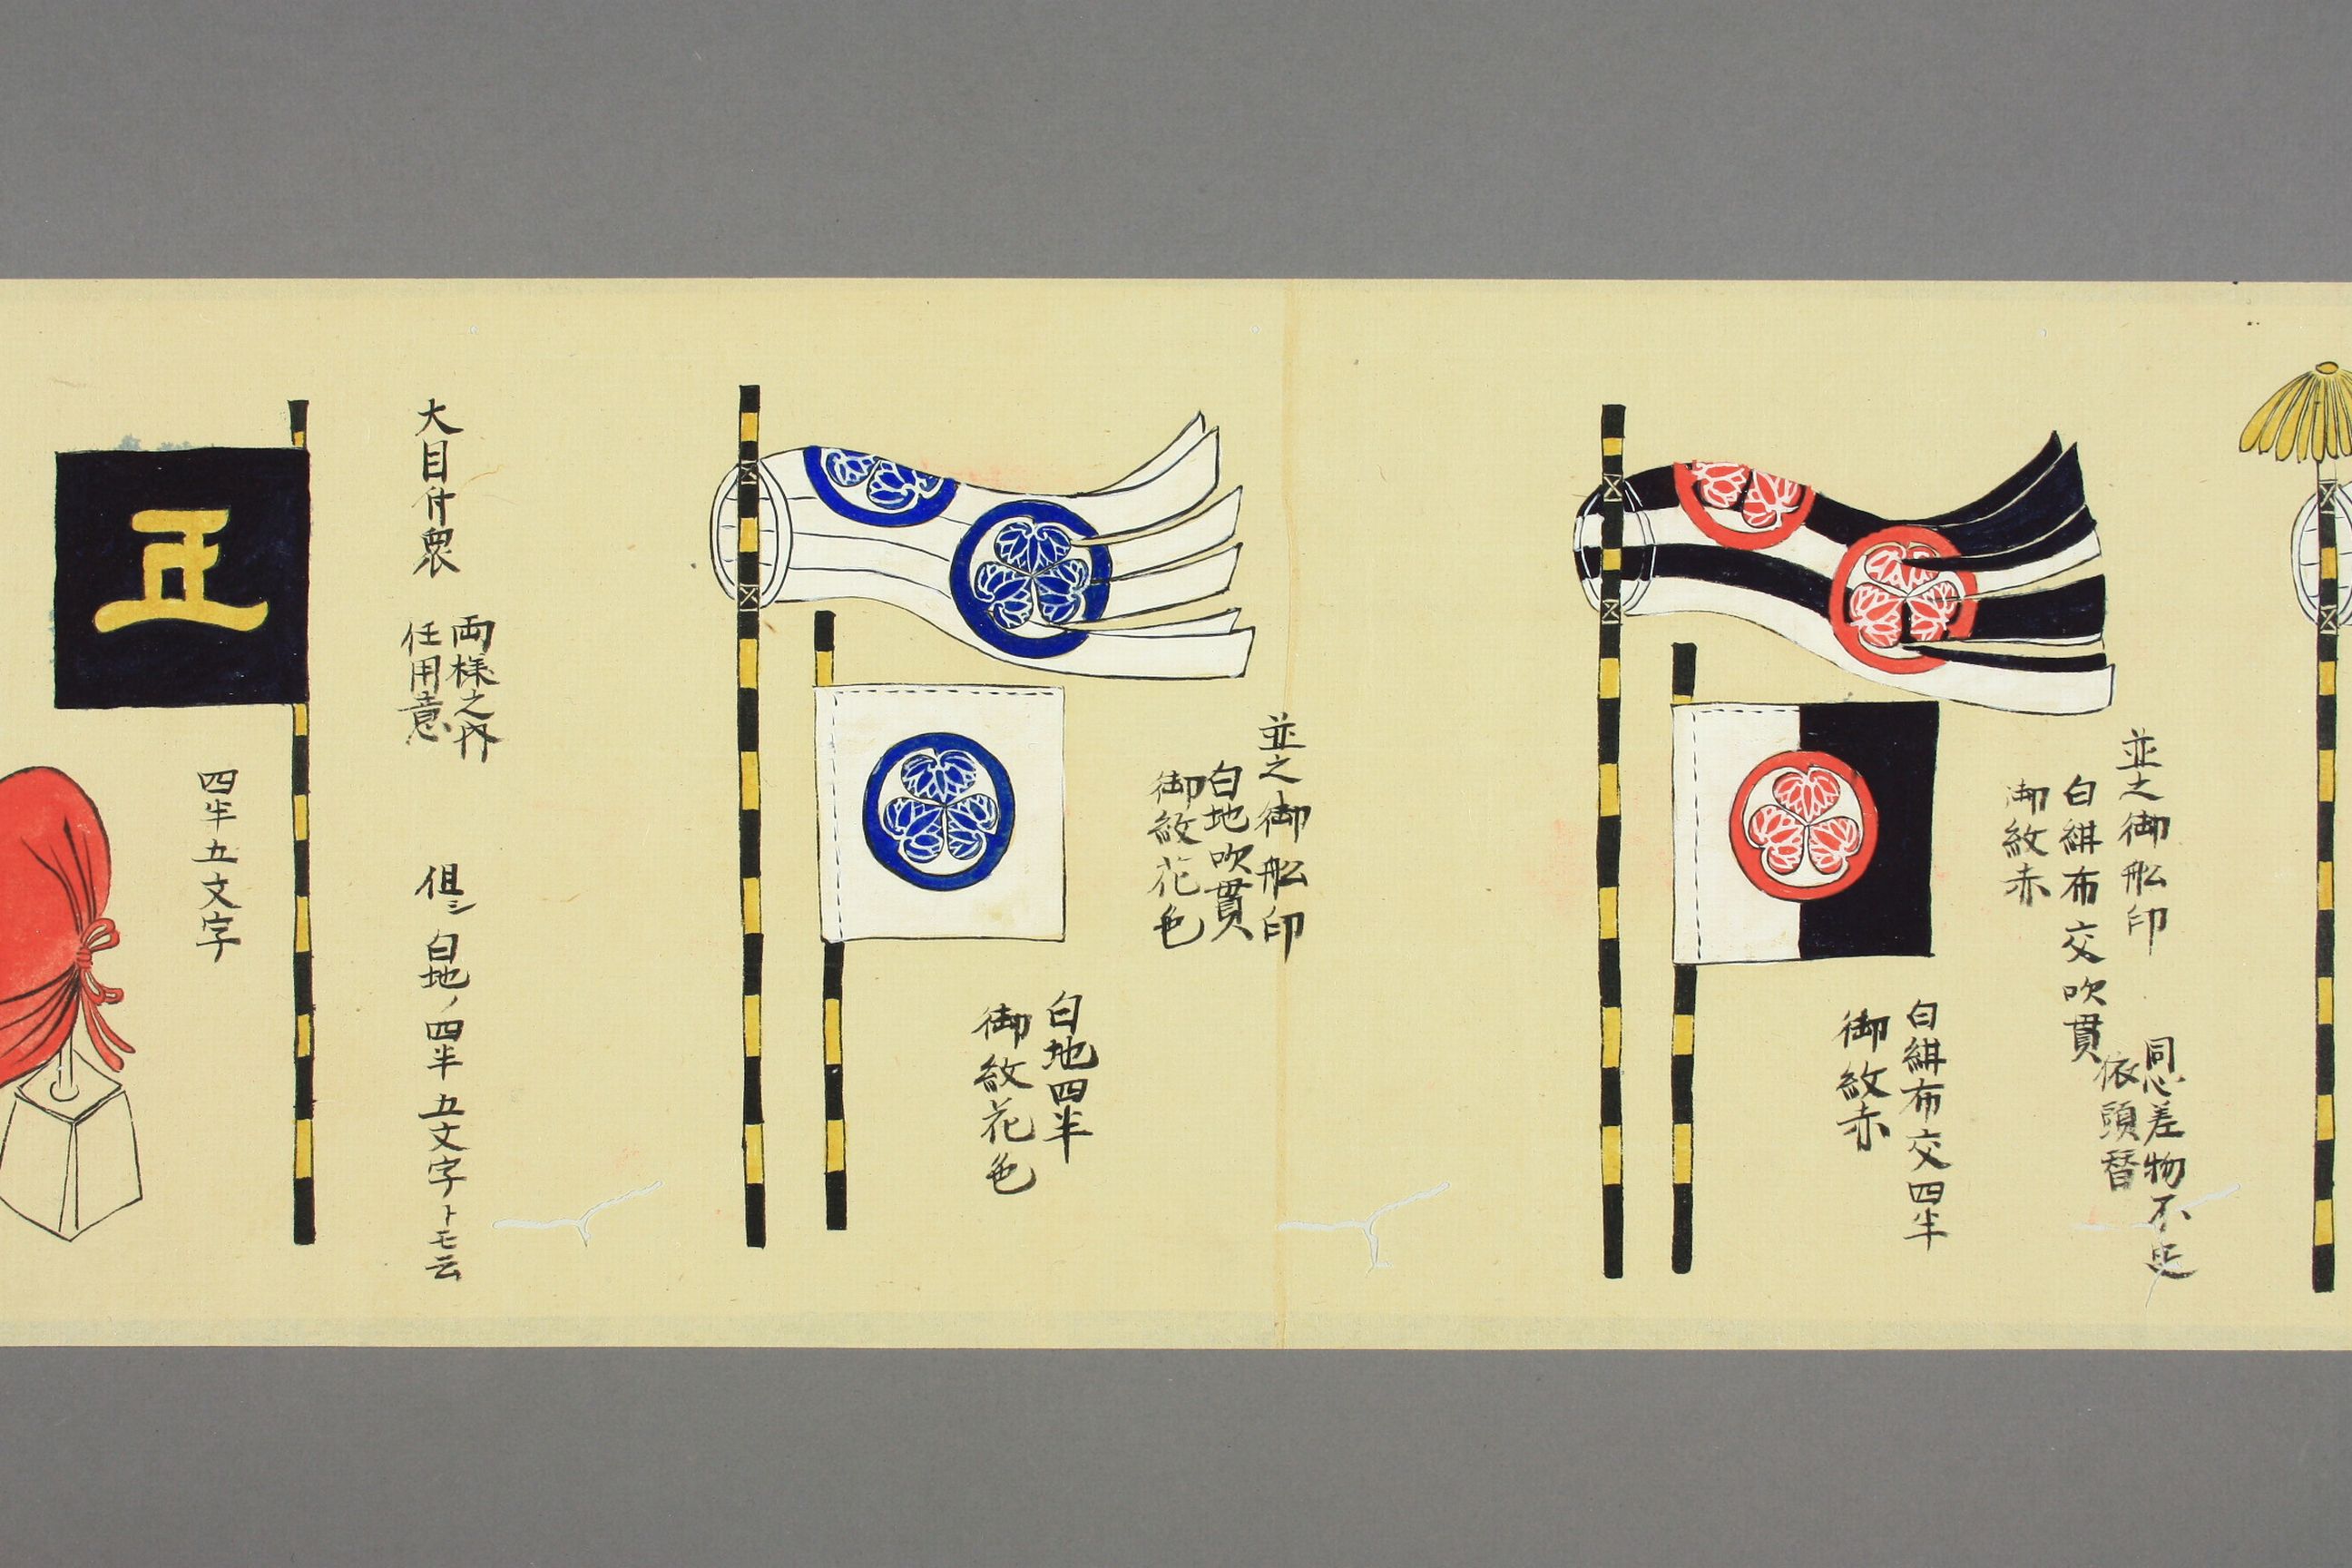 並之御舩印
白紺布交吹貫
御紋赤
同心差物不定
依頭替
白紺布交四半
御紋赤
並之御舩印
白地吹貫
御紋花色
白地四半
御紋花色
大目付衆
両様之内
任用意
但シ白地ノ四半五文字トモ云
五
四半五文字